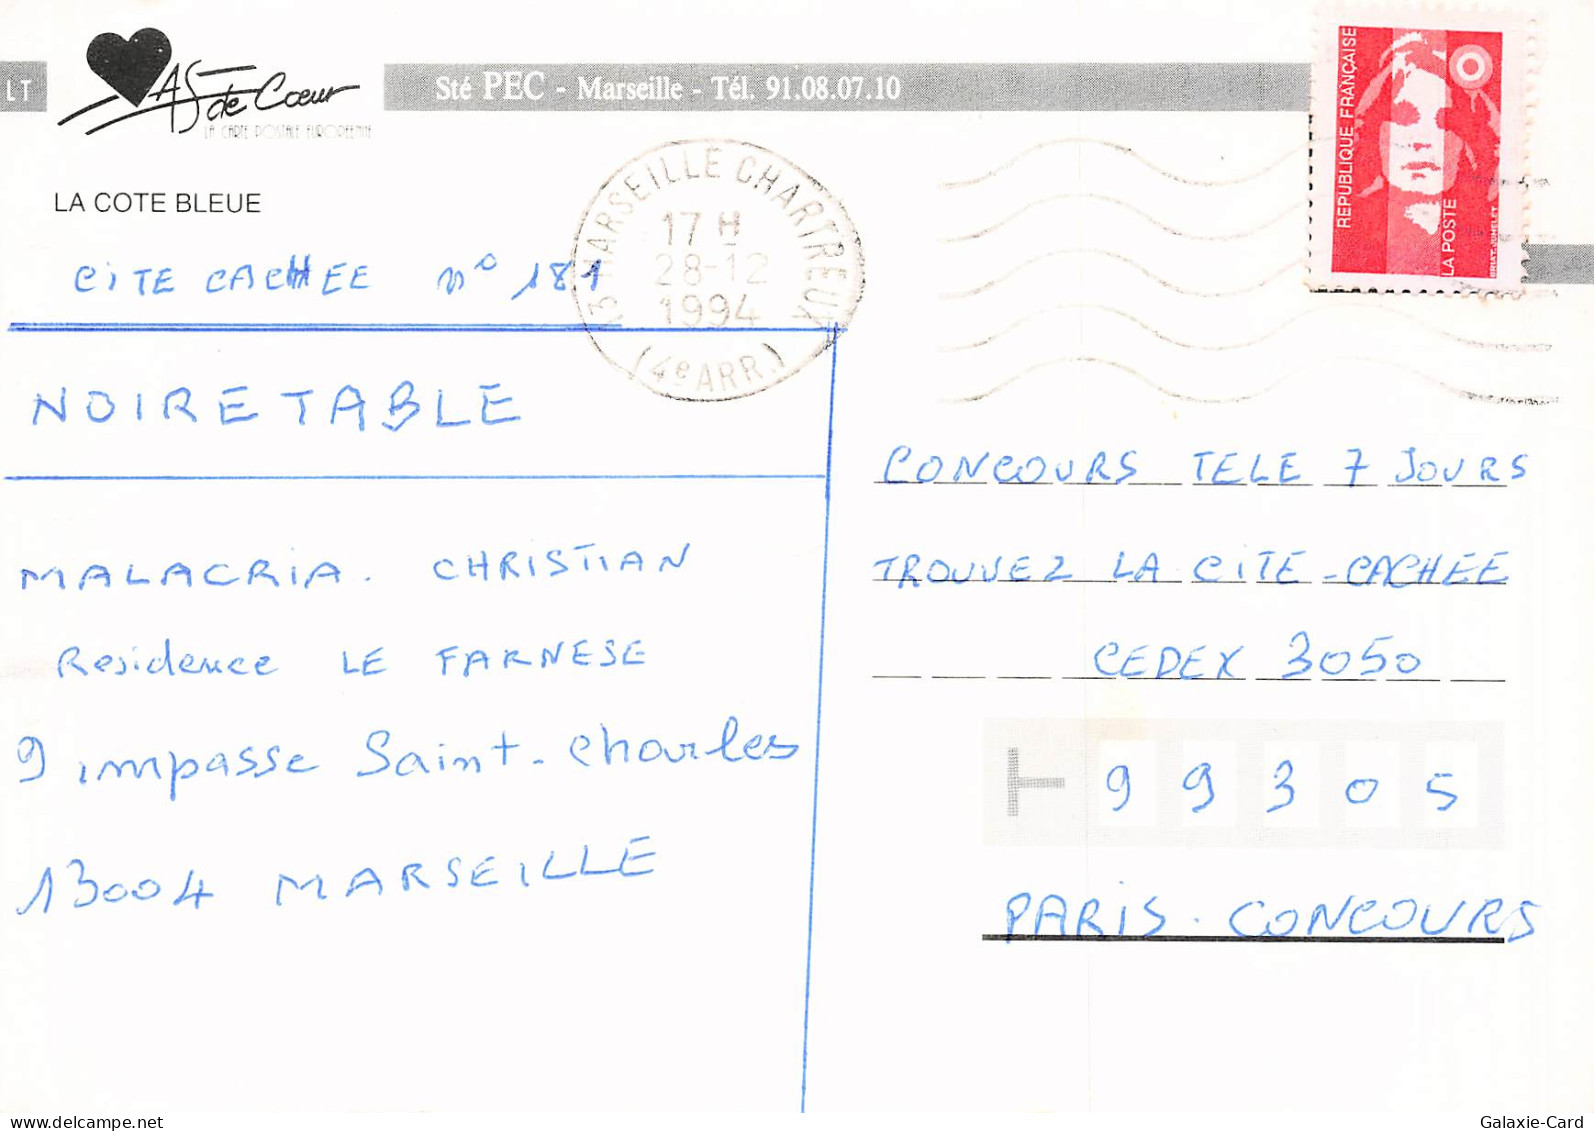 LT
AS de Cœur
LA CARTE POSTALE EUROPEENNE
Sté PEC - Marseille - Tél. 91.08.07.10
REPUBLIQUE FRANÇAISE
LA POSTE
BRIAT-JUMELET
LA COTE BLEUE
13 MARSEILLE CHARTREUX
17 H
28-12
1994
(4e ARR.)
CITE CACHEE n° 181
NOIRETABLE
MALACRIA. CHRISTIAN
Residence LE FARNESE
9 impasse Saint-Charles
13004 MARSEILLE
CONCOURS TELE 7 JOURS
TROUVEZ LA CITE-CACHEE
CEDEX 3050
99305
PARIS. CONCOURS
Galaxie-Card
www.delcampe.net